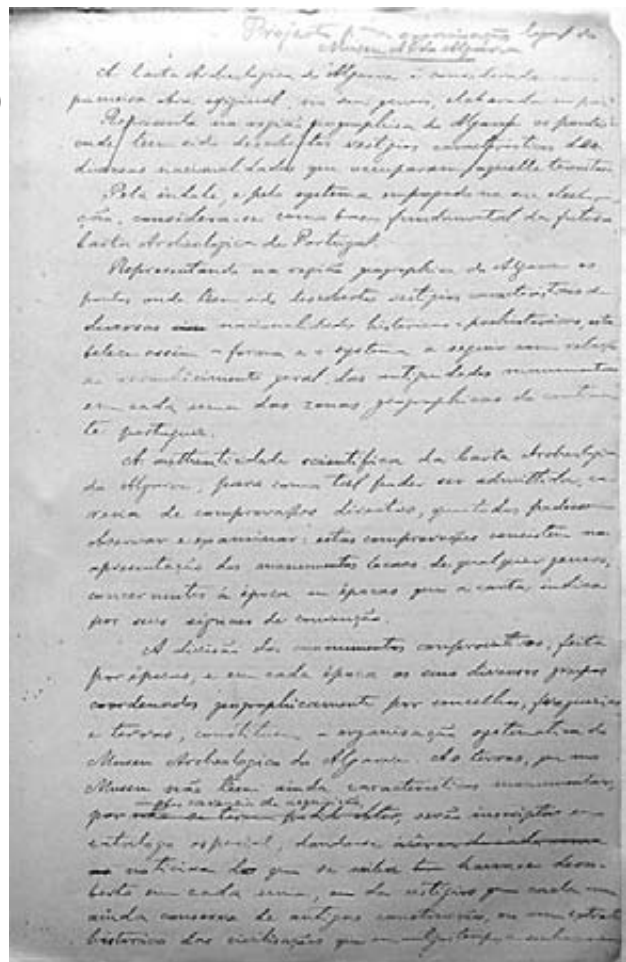 Projecto p.ª a organização legal do
Museu A. do Algarve
A Carta Archeologica do Algarve é considerada como
primeira obra original, no seu genero, elaborada no paiz
Representa na região geographica do Algarve os pontos
onde teem sido descobertos vestigios caracteristicos das
diversas nacionalidades que occuparam aquelle territorio
Pela indole, e pelo systema empregado na sua elabora-
ção, considera-se como base fundamental da futura
Carta Archeologica de Portugal.
Representando na região geographica do Algarve os
pontos onde teem sido descobertos vestigios caracteristicos de
diversas nacionalidades historicas e prehistoricas, esta
belece assim a forma e o systema a seguir com relação
ao reconhecimento geral das antiguidades monumentaes
em cada uma das zonas geographicas do continen
te portuguez.
A authenticidade scientifica da Carta Archeologica
do Algarve, para como tal poder ser admittida, ca
recia de comprovações directas, que todos podessem
observar e examinar: estas comprovações consistem na
apresentação dos monumentos locaes de qualquer genero,
concernentes á época ou épocas que a carta indica
por seus signaes de convenção.
A divisão dos monumentos comprovativos, feita
por épocas, e em cada época os seus diversos grupos
coordenados geographicamente por concelhos, freguezias
e terras, constituem a organisação systematica do
Museu Archeologico do Algarve. As terras, que no
Museu não teem ainda caracteristicos monumentaes,
por
catalogo especial, dando-se
noticia do que se saiba ter havido desco-
berto em cada uma, ou de vestigios que cada uma
ainda conserva de antigas construcções, ou um extracto
historico das civilisações que em